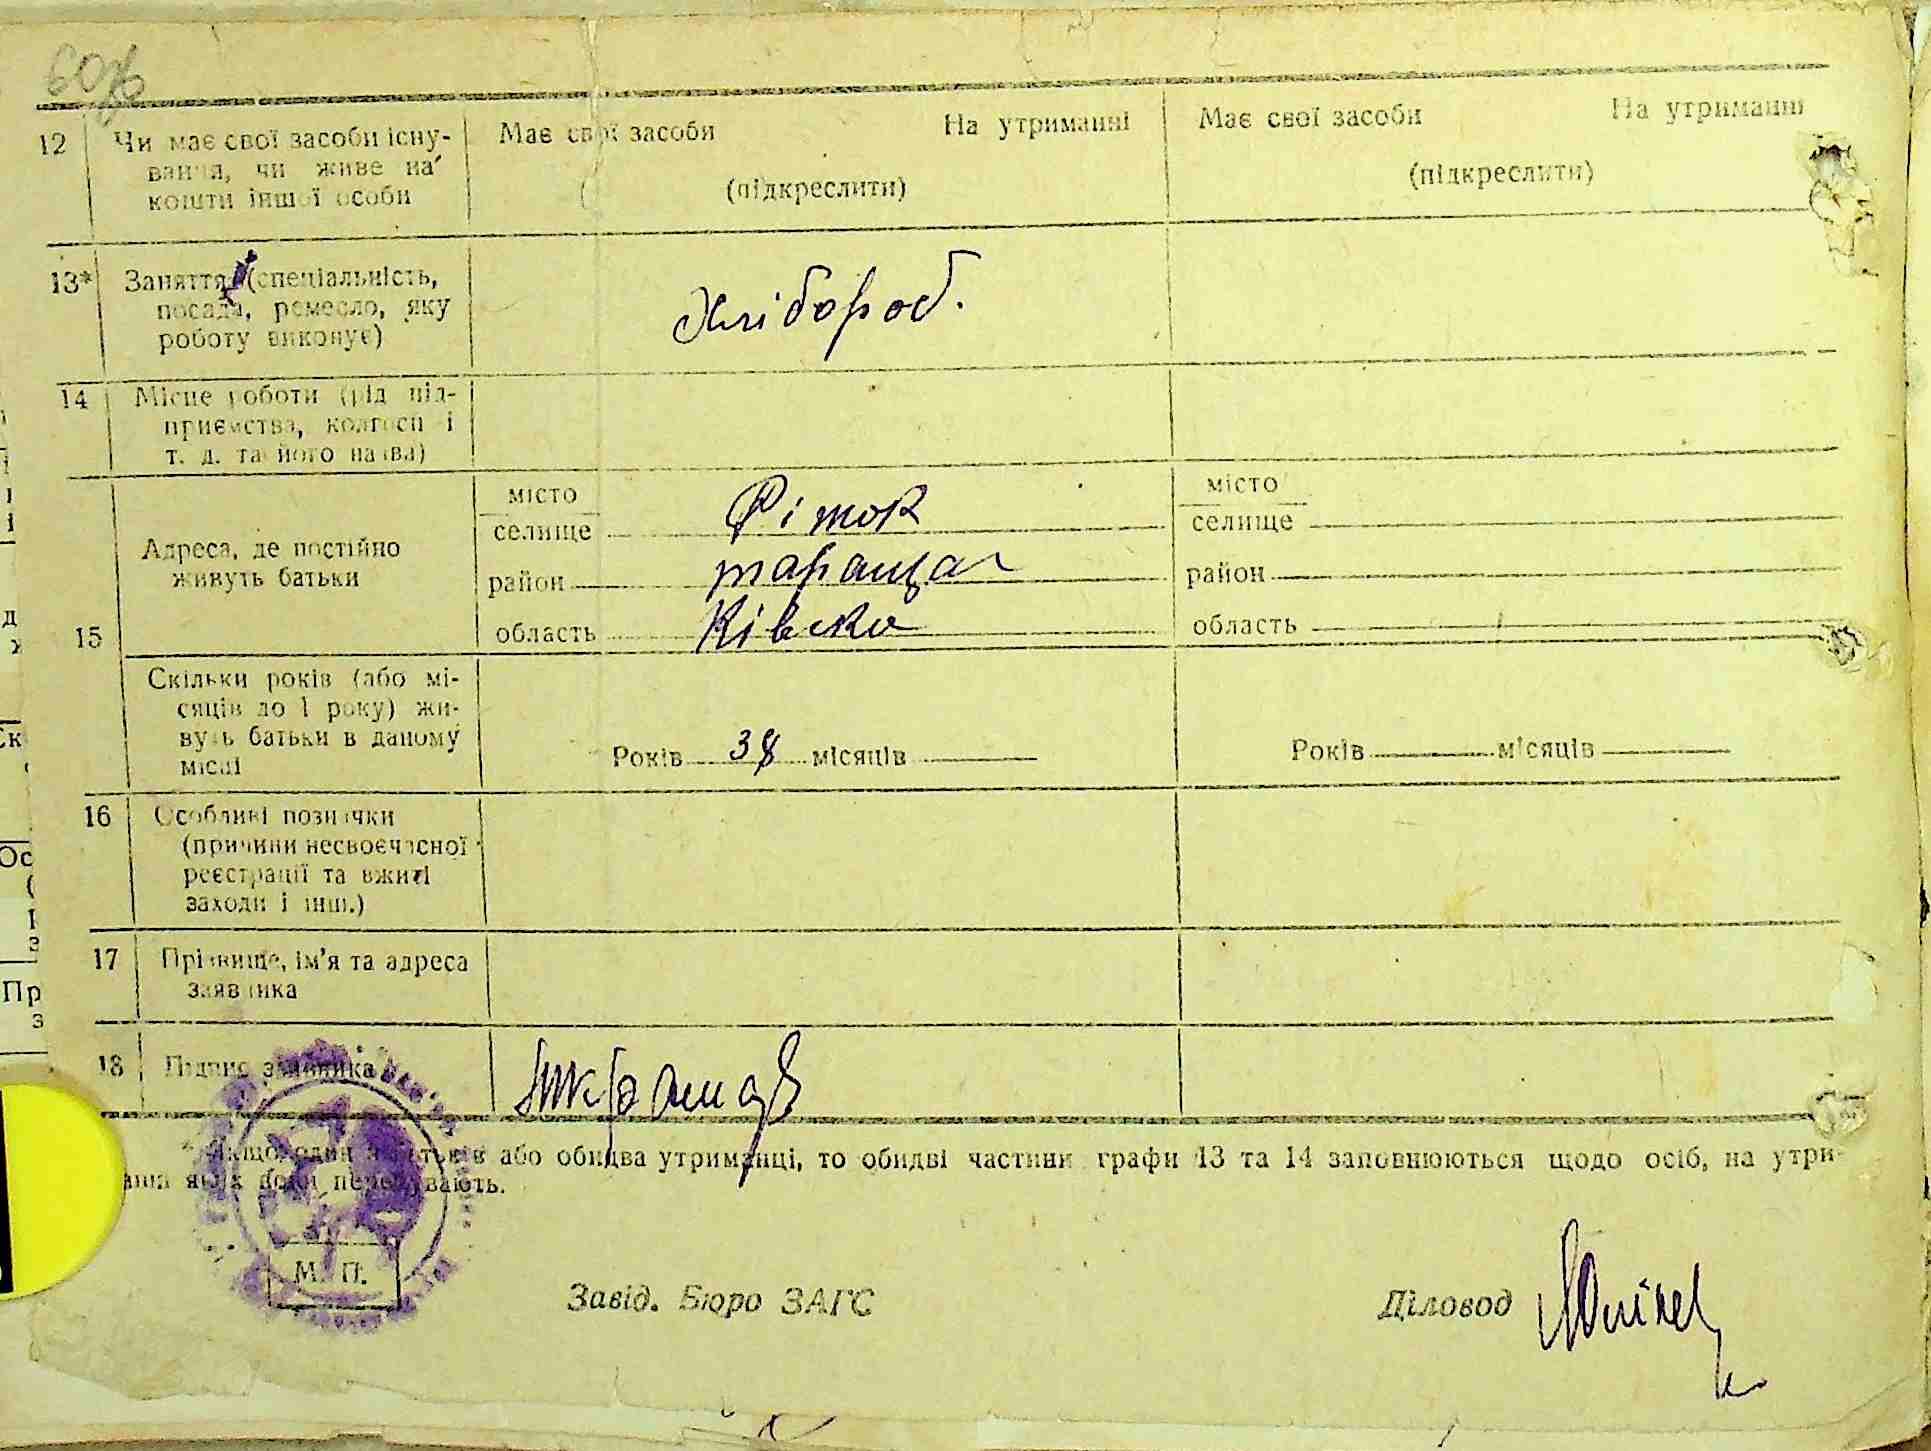 60
12 Чи має свої засоби існу-
вання, чи живе на
кошти іншої особи
Має свої засоби На утриманні
(підкреслити)
Має свої засоби На утриманні
(підкреслити)
13* Заняття (спеціальність,
посада, ремесло, яку
роботу виконує)
Хлібороб.
14 Місце роботи (рід під-
приємства, колгосп і
т. д. та його назва)
15
Адреса, де постійно
живуть батьки
місто
селище Фіток
район таращан
область Ківска
місто
селище
район
область
Скільки років (або мі-
сяців до 1 року) жи-
вуть батьки в даному
місці
Років 38 місяців
Років місяців
16 Особливі позначки
(причини несвоєчасної
реєстрації та вжиті
заходи і інш.)
17 Прізвище, ім'я та адреса
заявника
18 Підпис заявника
* Якщо один з батьків або обидва утриманці, то обидві частини графи 13 та 14 заповнюються щодо осіб, на утри-
манні яких вони перебувають.
М. П.
Завід. Бюро ЗАГС
Діловод